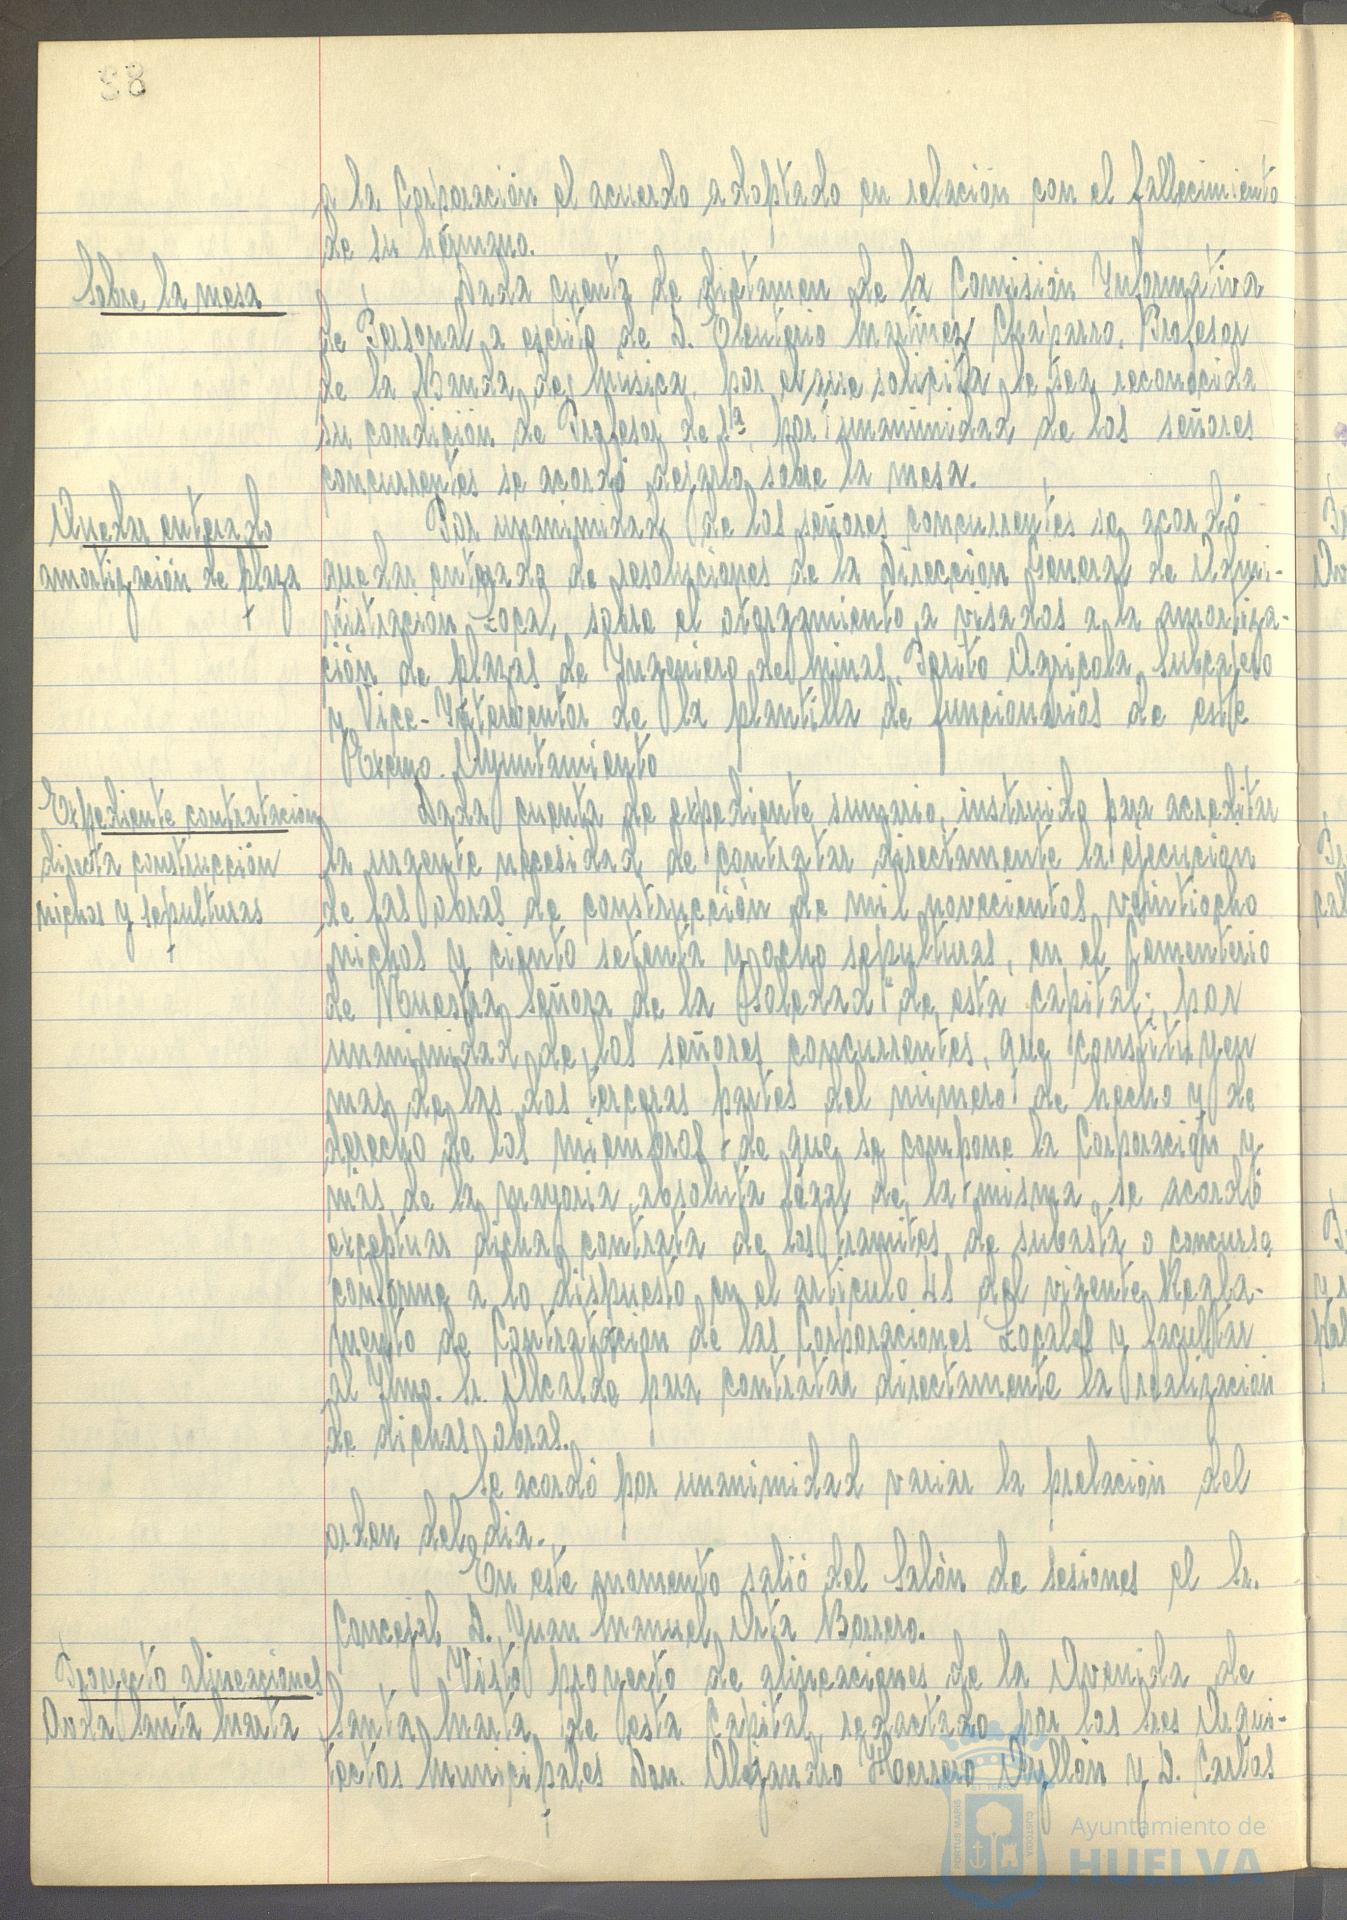 88
a la Corporación el acuerdo adoptado en relación con el fallecimiento
de su hermano.
Sobre la mesa
Dada cuenta de dictamen de la Comisión Informativa
de Personal a escrito de D. Eleuterio Martínez Chaparro, Profesor
de la Banda de Música, por el que solicita le sea reconocida
su condición de Profesor de 1ª, por unanimidad de los señores
concurrentes se acordó dejarlo sobre la mesa.
Quedar enterado
amortización de plaza
Por unanimidad de los señores concurrentes se acordó
quedar enterado de resoluciones de la Dirección General de Admi-
nistración Local, sobre el otorgamiento a visados a la amortiza-
ción de plazas de Ingeniero de Minas, Perito Agrícola, Subcajero
y Vice-Interventor de la plantilla de funcionarios de este
Excmo. Ayuntamiento
Expediente contratación
directa construcción
nichos y sepulturas
Dada cuenta de expediente sumario, instruido para acreditar
la urgente necesidad de contratar directamente la ejecución
de las obras de construcción de mil novecientos veintiocho
nichos y ciento setenta y ocho sepulturas, en el Cementerio
de Nuestra Señora de la Soledad" de esta capital; por
unanimidad de los señores concurrentes, que constituyen
mas de las dos terceras partes del número de hecho y de
derecho de los miembros de que se compone la Corporación y
más de la mayoria absoluta legal de la misma, se acordó
exceptuar dicha contrata de los tramites de subasta o concurso
conforme a lo dispuesto en el articulo 41 del vigente Regla-
mento de Contratación de las Corporaciones Locales y facultar
al Iltmo. Sr. Alcalde para contratar directamente la realización
de dichas obras.
Se acordó por unanimidad variar la prelación del
orden del dia.
En este momento salió del Salón de sesiones el Sr.
Concejal D. Juan Manuel Orta Borrero.
Proyecto alineaciones
Avda Santa Marta
Visto proyecto de alineaciones de la Avenida de
Santa Marta de esta Capital, redactado por los Sres Arqui-
tectos Municipales Don. Alejandro Herrero Ayllón y D. Carlos
PORTUS MARIS
ET TERRAE
CUSTODIA
Ayuntamiento de
HUELVA